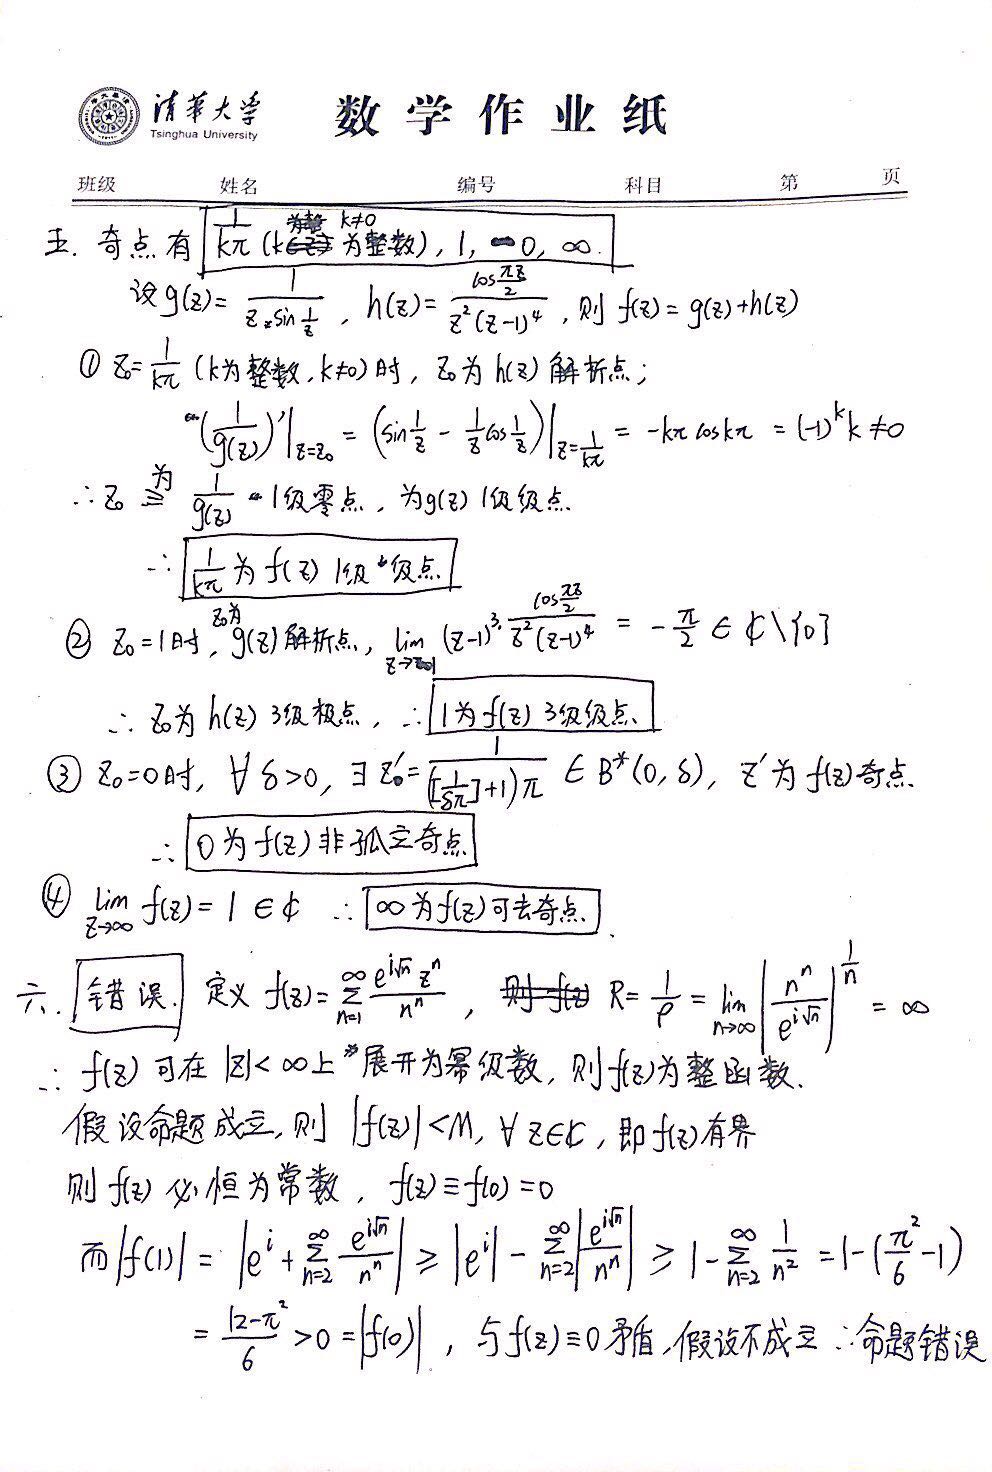 清华大学 数学作业纸
Tsinghua University
班级 姓名 编号 科目 第 页
五. 奇点有 1/kπ (k为整数, k≠0), 1, 0, ∞.
设 g(z) = 1/(z sin 1/z), h(z) = cos(πz/2)/(z²(z-1)⁴), 则 f(z) = g(z)+h(z)
① z₀ = 1/kπ (k为整数, k≠0)时, z₀为h(z)解析点;
(1/g(z))'|_{z=z₀} = (sin 1/z - 1/z cos 1/z)|_{z=1/kπ} = -kπ cos kπ = (-1)^k k ≠ 0
∴ z₀ 为 1/g(z) 1级零点, 为g(z) 1级级点.
∴ 1/kπ 为 f(z) 1级级点.
② z₀=1时, z₀为g(z)解析点, lim_{z→1} (z-1)³· cos(πz/2)/(z²(z-1)⁴) = -π/2 ∈ ℂ\{0}
∴ z₀为h(z) 3级极点, ∴ 1为f(z) 3级级点.
③ z₀=0时, ∀δ>0, ∃ z₀' = 1/(([1/δπ]+1)π) ∈ B*(0,δ), z'为f(z)奇点.
∴ 0为f(z)非孤立奇点
④ lim_{z→∞} f(z) = 1 ∈ ℂ ∴ ∞为f(z)可去奇点.
六. 错误. 定义 f(z) = Σ_{n=1}^∞ e^{i√n} zⁿ/nⁿ, R = 1/ρ = lim_{n→∞} |nⁿ/e^{i√n}|^{1/n} = ∞
∴ f(z)可在|z|<∞上展开为幂级数, 则f(z)为整函数.
假设命题成立, 则 |f(z)|<M, ∀z∈ℂ, 即f(z)有界
则f(z)必恒为常数, f(z)≡f(0)=0
而|f(1)| = |e^i + Σ_{n=2}^∞ e^{i√n}/nⁿ| ≥ |e^i| - Σ_{n=2}^∞ |e^{i√n}/nⁿ| ≥ 1 - Σ_{n=2}^∞ 1/n² = 1-(π²/6 -1)
= (12-π²)/6 > 0 = |f(0)|, 与f(z)≡0矛盾, 假设不成立 ∴命题错误